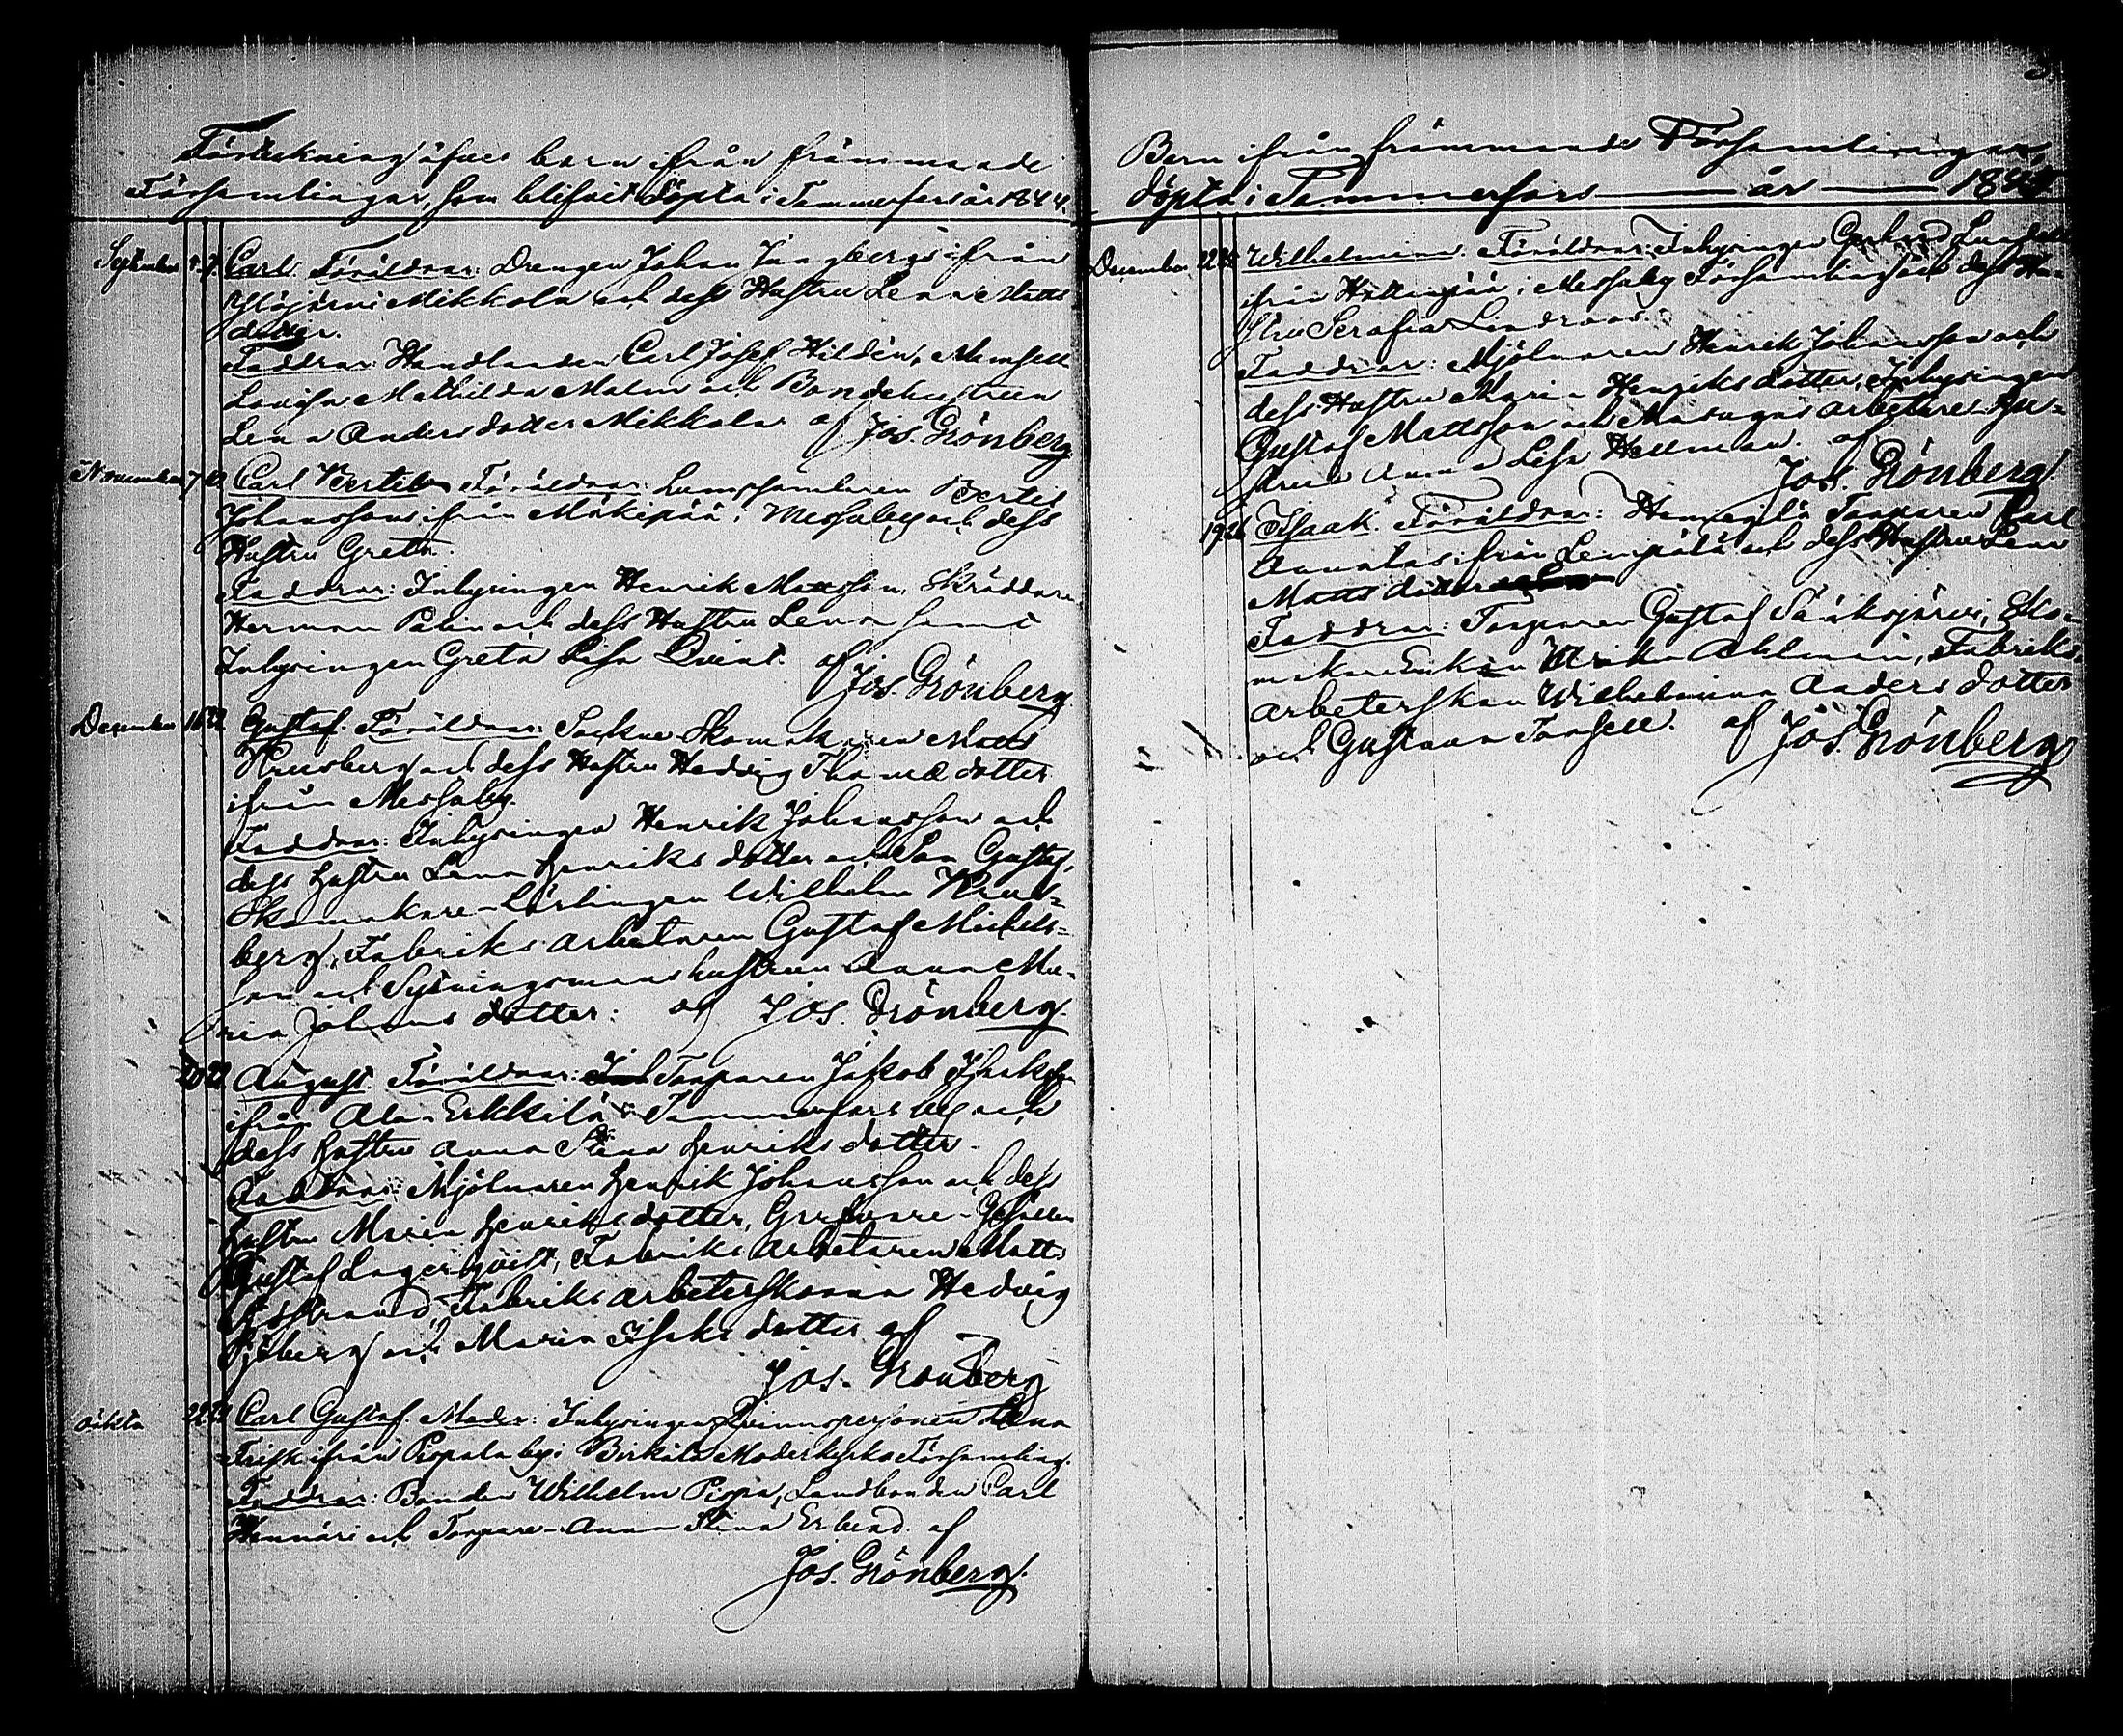 Förtekning öfver barn ifrån främmande
Församlingar, som blifvit döpta i Tammerfors år 1844.
September 7. Carl. Föräldrar: Drengen Johan Ljungberg ifrån
Ylöjärvi Mikkola och dess Hustru Lena Matts
dotter.
Faddrar: Handlanden Carl Josef Hildén, Mamsell
Lovisa Mathilda Malm och Bondehustrun
Lena Anders dotter Mikkola af Jos. Grönberg
November 7 Carl Bertil. Föräldrar: Lumpsamlaren Bertil
Johansson ifrån Mäkipää i Messuby och dess
Hustru Greta.
Faddrar: Inhysingen Henrik Mattsson, Skräddaren
Herman Palin och dess Hustru Lena samt
Inhysingen Greta Lisa Qvint. af Jos. Grönberg
December 16 22 Gustaf. Föräldrar: Sockne Skomakaren Matts
Krusberg och dess Hustru Hedvig Thomæ dotter
ifrån Messuby.
Faddrar: Inhysingen Henrik Johansson och
dess hustru Lena Henriks dotter och Son Gustaf,
Skomakare-Lärlingen Wilhelm Krus-
berg, Fabriks arbetaren Gustaf Michels-
son och Sytningsmans hustrun Anna Ma-
ria Johans dotter: af Jos. Grönberg.
20 22 August. Föräldrar: Torparen Jakob Isaksson
ifrån Ala-Erkkilä i Tammerfors by och
dess hustru Anna Stina Henriks dotter.
Faddrar: Mjölnaren Henrik Johansson och dess
hustru Maria Henriks dotter, Garfvare-Gesällen
Gustaf Lagerqvist, Fabriks arbetaren Matts
Fabriks arbeterskorna Hedvig
Sjöberg och Maria Isaks dotter af
Jos. Grönberg
Oäkta 22 Carl Gustaf. Moder: Inhysingen Qvinnspersonen Lena
Frisk ifrån Pispala by i Birkala Moderkyrko Församling.
Faddrar: Bonden Wilhelm Pispa, Landbonden Carl
Hannäri och Torpare- Anna Stina Erland. af
Jos. Grönberg.
Barn ifrån främmande Församlingar,
döpta i Tammerfors år 1844
December 22 Wilhelmina. Föräldrar: Inhysingen Gerhard
ifrån i Messuby Församling och dess Hu-
stru Serafia Lindroos.
Faddrar: Mjölnaren Henrik Johansson och
dess Hustru Maria Henriks dotter, Inhysingen
Gustaf Mattsson och Masugns arbetares Hu-
strun Anna Lisa Hellman. af
Jos. Grönberg
19 26 Isaak. Föräldrar: Torparen Carl
Annala ifrån Lempälä och dess Hustru Lena
Matts dotter
Faddrar: Torparen Gustaf Sääksjärvi, Sko-
makare Enkan Ulrika Ahlman, Fabriks
arbeterskan Wilhelmina Anders dotter
och Gustava Tonsell. af Jos. Grönberg